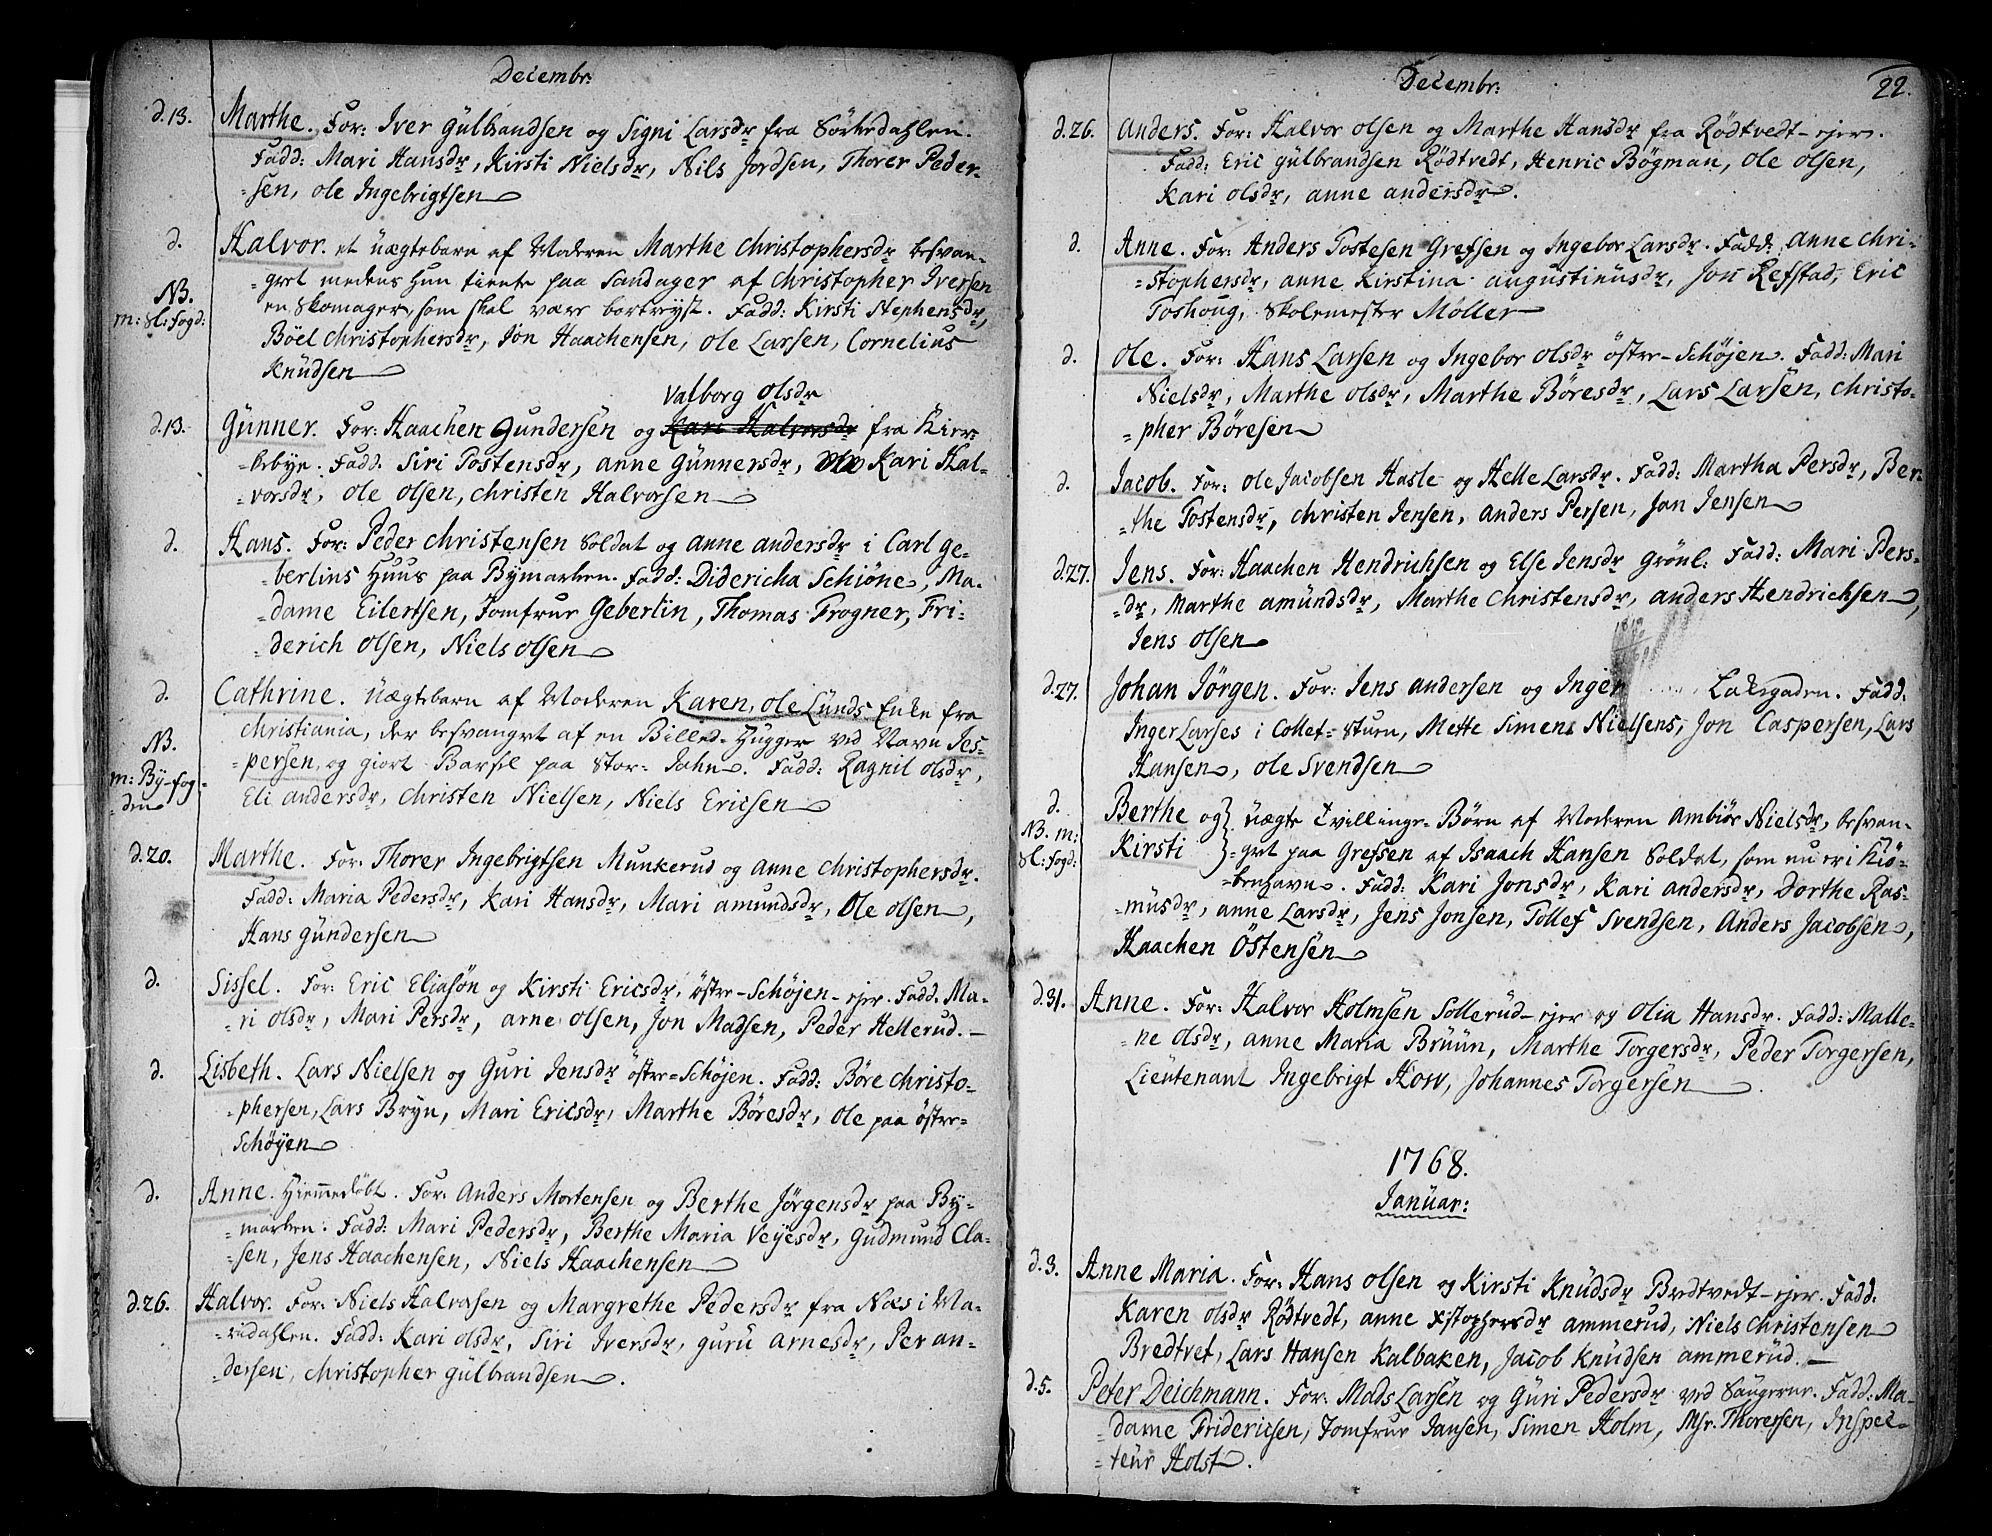 Decembr:
d.13. Marthe. For: Iver Gülbrandsen og Signi Larsdr fra Sørkedahlen.
Fadd: Mari Hansdr, Kirsti Nielsdr, Nils Jordsen, Thorer Peder-
-sen, Ole Ingebrigtsen
d. Halvor. et üægtebarn af Moderen Marthe Christophersdr besvan-
NB. -gret medens hun tiente paa Sandager af Christopher Iversen
m: Sl: fogd: en Skomager, som skal være bortreyst. Fadd: Kirsti Stephensdr,
Böel Christophersdr, Jon Haachensen, Ole Larsen, Cornelius
Knüdsen
Valborg Olsdr
d.13. Günner. For: Haachen Gundersen og Kari Halvorsdr fra Kier-
-bebye. Fadd: Siri Tostensdr, Anne Günnersdr, Kari Hal-
-vorsdr, Ole Olsen, Christen Halvorsen
d. Hans. For: Peder Christensen Soldat og Anne Andersdr i Carl Ge-
-berlins Huus paa Bymarken. Fadd: Didericha Schiöne, Ma-
-dame Eilertsen, Jomfrue Geberlin, Thomas Frogner, Fri-
-derich Olsen, Niels Olsen
d. Cathrine. Uægtebarn af Moderen Karen, Ole Lünds Enke fra
NB. Christiania, der besvangret af en Billed-Hugger ved Navn Jes-
m: By-fog- -persen, og giort Barsel paa Stor-Jahn. Fadd: Ragnil Olsdr,
-den Eli Andersdr, Christen Nielsen, Niels Ericsen
d.20. Marthe. For: Thorer Ingebrigtsen Munkerud og Anne Christophersdr.
Fadd: Maria Pedersdr, Kari Hansdr, Mari Amundsdr, Ole Olsen,
Hans Gündersen
d. Sissel. For: Eric Eliasön og Kirsti Ericsdr, östre-Schöjen-ejer. Fadd: Ma-
-ri Olsdr, Mari Persdr, Arne Olsen, Jon Madsen, Peder Hellerud.
d. Lisbeth. Lars Nielsen og Guri Jensdr östre-Schöjen. Fadd: Böre Christo-
-phersen, Lars Bryn, Mari Ericsdr, Marthe Böresdr, Ole paa östre-
Schöyen
d. Anne. Hiemmedöbt. For: Anders Mortensen og Berthe Jörgensdr paa By-
-marken. Fadd: Mari Pedersdr, Berthe Maria Veyesdr, Gudmund Cla-
-sen, Jens Haachensen, Niels Haachensen
d.26. Halvor. For: Niels Halvorsen og Margrethe Pedersdr fra Næs i Ma-
-ridahlen. Fadd: Kari Olsdr, Siri Iversdr, Guru Arnesdr, Per An-
-dersen, Christopher Gülbrandsen.
Decembr: 22.
d.26. Anders. For: Halvor Olsen og Marthe Hansdr fra Rödtvedt-ejer.
Fadd: Eric Gülbrandsen Rödtvedt, Henric Bögman, Ole Olsen,
Kari Olsdr, Anne Andersdr.
d. Anne. For: Anders Tostesen Grefsen og Ingebor Larsdr. Fadd: Anne Chri-
-stophersdr, Anne Kirstina Augustinüsdr, Jon Refstad, Eric
Toshoug, Skolemester Möller
d. Ole. For: Hans Larsen og Ingebor Olsdr östre-Schöjen. Fadd: Mari
Nielsdr, Marthe Olsdr, Marthe Böresdr, Lars Larsen, Christo-
-pher Böresen
d. Jacob. For: Ole Jacobsen Hasle og Helle Larsdr. Fadd: Martha Persdr, Ber-
-the Tostensdr, Christen Jensen, Anders Persen, Jon Jensen
d.27. Jens. For: Haachen Hendrichsen og Else Jensdr Grönl: Fadd: Mari Pers-
-dr, Marthe Amündsdr, Marthe Christensdr, Anders Hendrichsen,
Jens Olsen
d.27. Johan Jörgen. For: Jens Andersen og Inger Laksgaden. Fadd:
Inger Larses i Collet-Stuen, Mette Simens Nielsens, Jon Caspersen, Lars
Hansen, Ole Svendsen
d. Berthe og } üægte Tvillinge-Börn af Moderen Ambiör Nielsdr, besvan-
NB. m: Kirsti } -gret paa Grefsen af Isaach Hansen Soldat, som nu er i Kiö-
Sl: fogd: -benhavn. Fadd: Kari Jonsdr, Kari Andersdr, Dorthe Ras-
-müsdr, Anne Larsdr, Jens Jonsen, Tollef Svendsen, Anders Jacobsen,
Haachen Östensen
d.31. Anne. For: Halvor Holmsen Sollerud-ejer og Olia Hansdr. Fadd: Malle-
-ne Olsdr, Anne Maria Brüün, Marthe Torgersdr, Peder Torgersen,
Lieutenant Ingebrigt How, Johannes Torgersen
1768.
Januar:
d.3. Anne Maria. For: Hans Olsen og Kirsti Knüdsdr Bredtvedt-ejer. Fadd:
Karen Olsdr Rödtvedt, Anne Xstophersdr Ammerud, Niels Christensen
Bredtvet, Lars Hansen Kalbaken, Jacob Knüdsen Ammerüd.
d.5. Peter Deichmann. For: Mads Larsen og Güri Pedersdr ved Saugerne. Fadd: Ma-
-dame Fridericsen, Jomfrue Jansen, Simen Holm, Msr. Thoresen, Inspec-
-teur Holst.